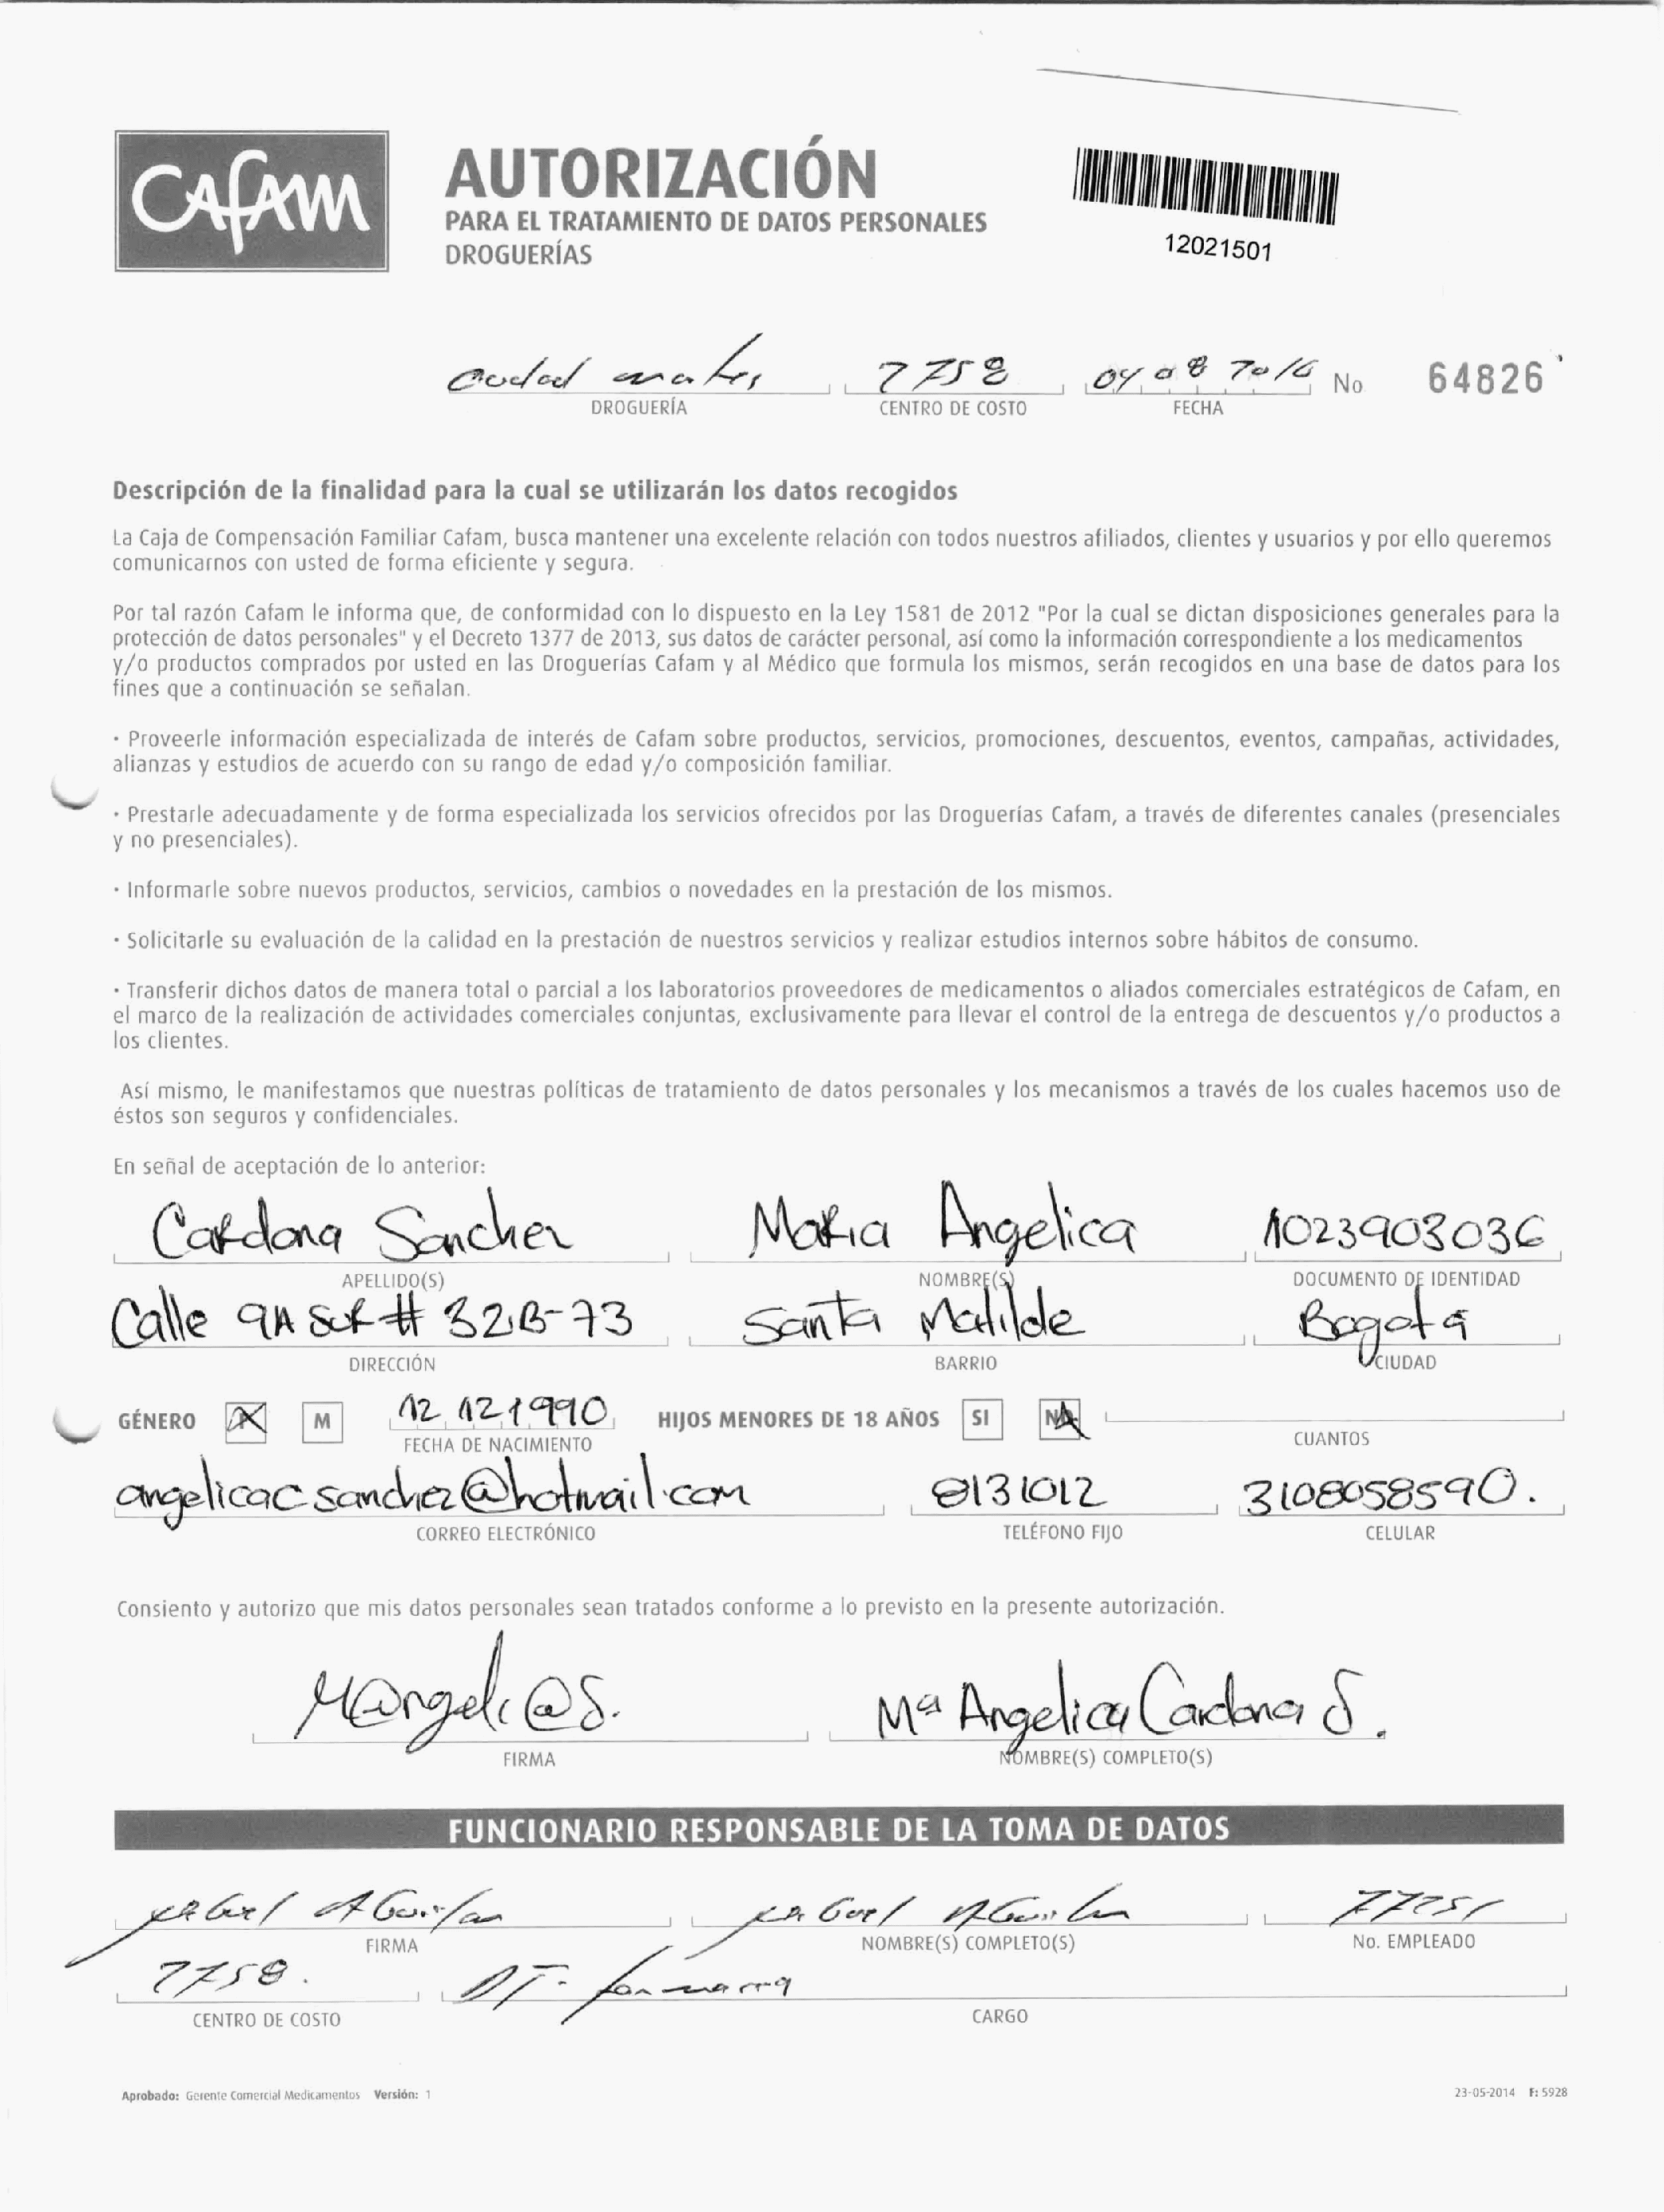 Cafam
AUTORIZACIÓN
PARA EL TRATAMIENTO DE DATOS PERSONALES
DROGUERÍAS
12021501
7758 04 08 2016 No 64826
DROGUERÍA CENTRO DE COSTO FECHA
Descripción de la finalidad para la cual se utilizarán los datos recogidos
La Caja de Compensación Familiar Cafam, busca mantener una excelente relación con todos nuestros afiliados, clientes y usuarios y por ello queremos
comunicarnos con usted de forma eficiente y segura.
Por tal razón Cafam le informa que, de conformidad con lo dispuesto en la Ley 1581 de 2012 "Por la cual se dictan disposiciones generales para la
protección de datos personales" y el Decreto 1377 de 2013, sus datos de carácter personal, así como la información correspondiente a los medicamentos
y/o productos comprados por usted en las Droguerías Cafam y al Médico que formula los mismos, serán recogidos en una base de datos para los
fines que a continuación se señalan.
· Proveerle información especializada de interés de Cafam sobre productos, servicios, promociones, descuentos, eventos, campañas, actividades,
alianzas y estudios de acuerdo con su rango de edad y/o composición familiar.
· Prestarle adecuadamente y de forma especializada los servicios ofrecidos por las Droguerías Cafam, a través de diferentes canales (presenciales
y no presenciales).
· Informarle sobre nuevos productos, servicios, cambios o novedades en la prestación de los mismos.
· Solicitarle su evaluación de la calidad en la prestación de nuestros servicios y realizar estudios internos sobre hábitos de consumo.
· Transferir dichos datos de manera total o parcial a los laboratorios proveedores de medicamentos o aliados comerciales estratégicos de Cafam, en
el marco de la realización de actividades comerciales conjuntas, exclusivamente para llevar el control de la entrega de descuentos y/o productos a
los clientes.
Así mismo, le manifestamos que nuestras políticas de tratamiento de datos personales y los mecanismos a través de los cuales hacemos uso de
éstos son seguros y confidenciales.
En señal de aceptación de lo anterior:
Cardona Sanchez Maria Angelica 1023903036
APELLIDO(S) NOMBRE(S) DOCUMENTO DE IDENTIDAD
Calle 9A Sur # 32B-73 Santa Matilde Bogotá
DIRECCIÓN BARRIO CIUDAD
GÉNERO M 12 12 1990 HIJOS MENORES DE 18 AÑOS SI NO
FECHA DE NACIMIENTO CUANTOS
angelicacsanchez@hotmail.com 8131012 3108058590.
CORREO ELECTRÓNICO TELÉFONO FIJO CELULAR
Consiento y autorizo que mis datos personales sean tratados conforme a lo previsto en la presente autorización.
M@ngelic@S. Mª Angelica Cardona S.
FIRMA NOMBRE(S) COMPLETO(S)
FUNCIONARIO RESPONSABLE DE LA TOMA DE DATOS
FIRMA NOMBRE(S) COMPLETO(S) No. EMPLEADO
7758.
CENTRO DE COSTO CARGO
Aprobado: Gerente Comercial Medicamentos Versión: 1 23-05-2014 F: 5928